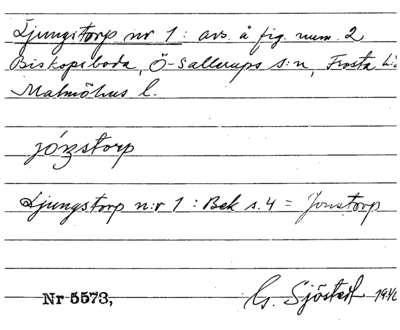 Ljungstorp nr 1: avs. å fig. num. 2
Biskopsboda, Ö-Sallerups s:n, Frosta h:d
Malmöhus l.
jónstorp
Ljungstorp n:r 1: Bek s. 4 = Jonstorp
Nr 5573, G. Sjöstedt 1940